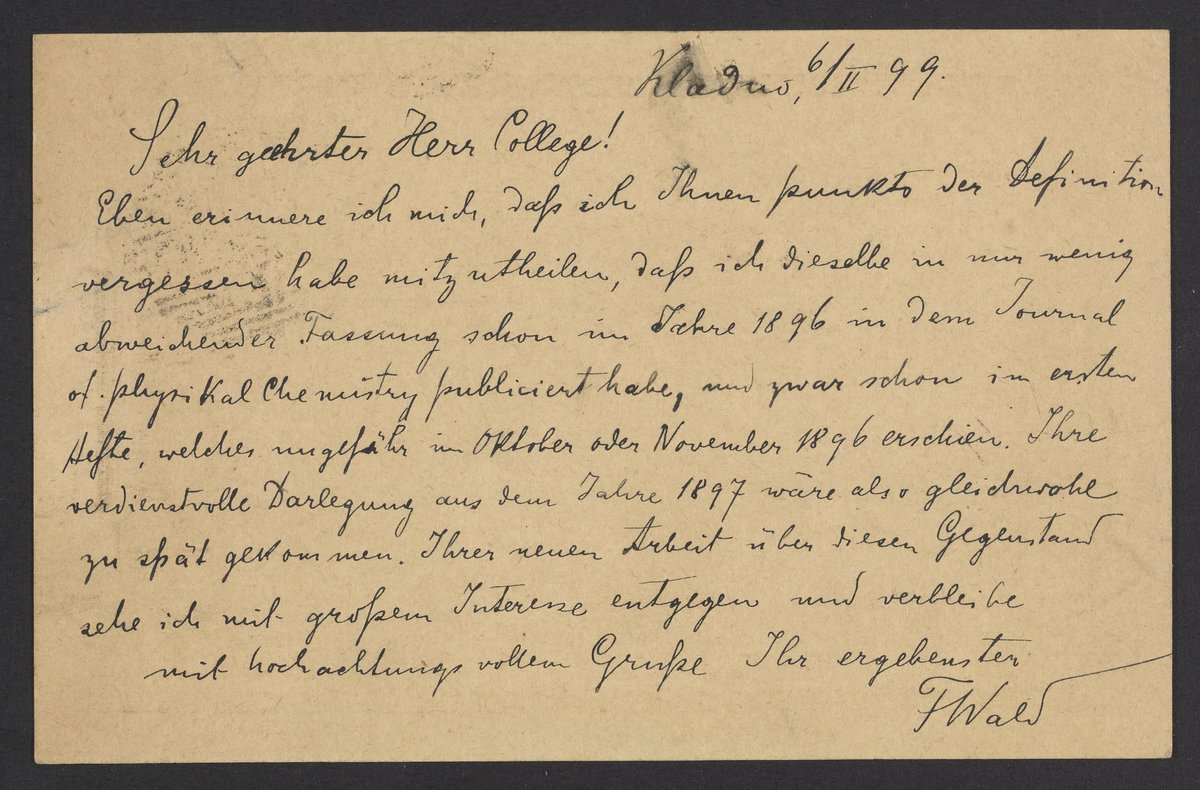 Kladno, 6/II 99.
Sehr geehrter Herr College!
Eben erinnere ich mich, daß ich Ihnen punkto der Definition
vergessen habe mitzutheilen, daß ich dieselbe in nur wenig
abweichender Fassung schon im Jahre 1896 in dem Journal
of. physikal Chemistry publiciert habe, und zwar schon im ersten
Hefte, welches ungefähr im Oktober oder November 1896 erschien. Ihre
verdienstvolle Darlegung aus dem Jahre 1897 wäre also gleichwohl
zu spät gekommen. Ihrer neuen Arbeit über diesen Gegenstand
sehe ich mit großem Interesse entgegen und verbleibe
mit hochachtungsvollem Gruße Ihr ergebenster
FWald